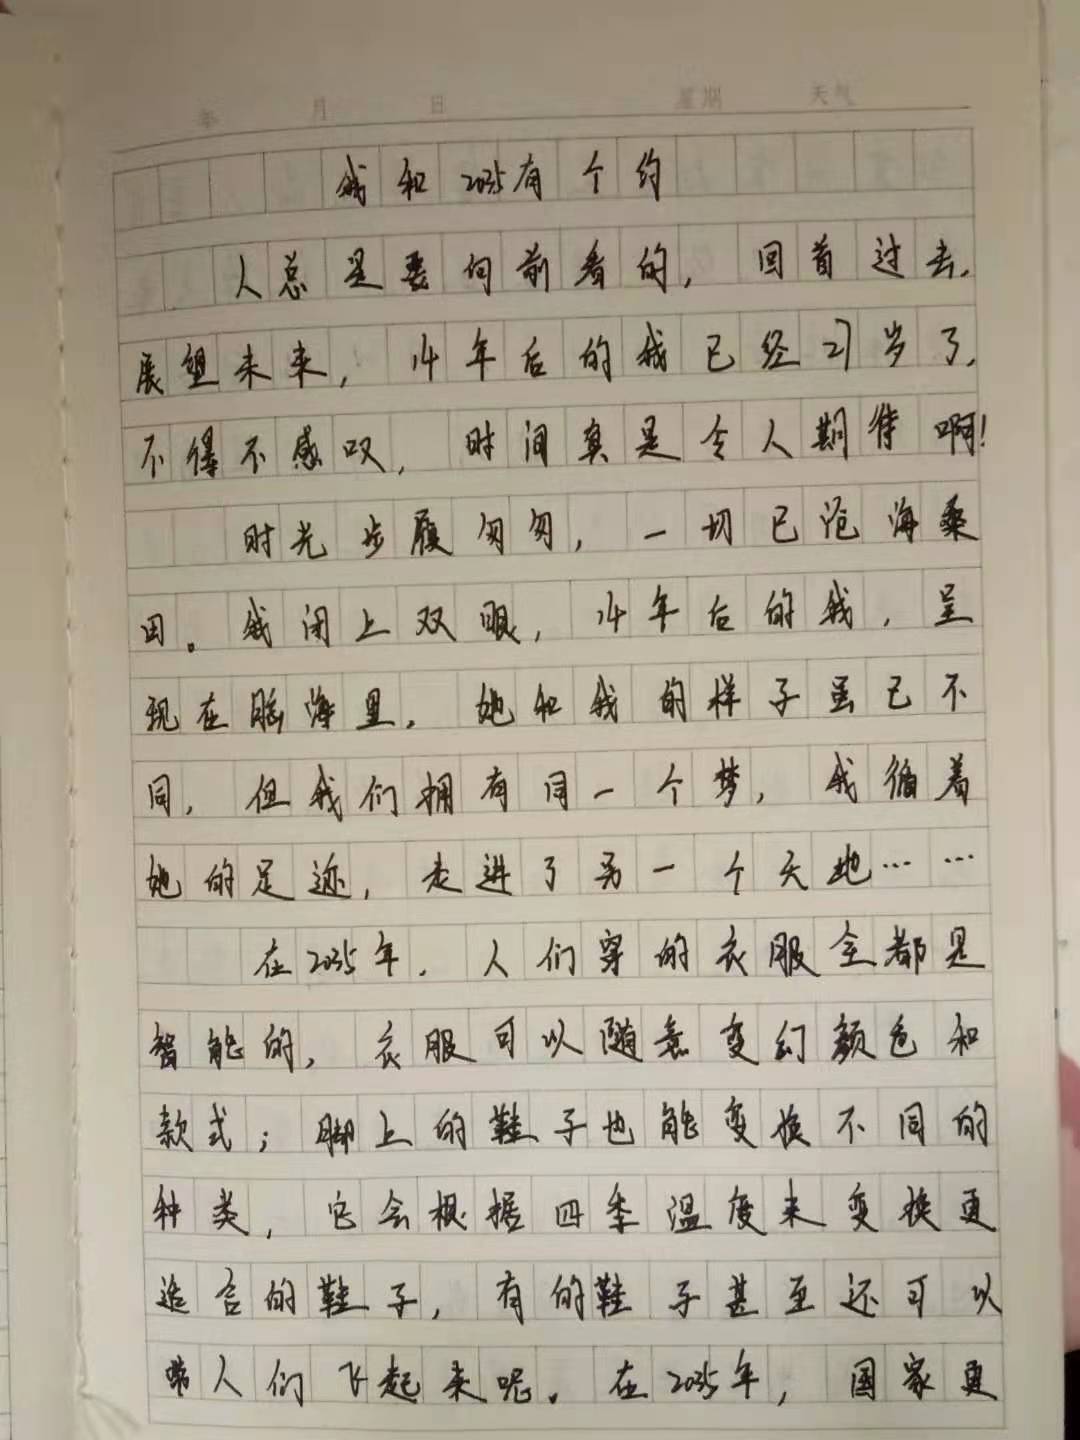 年 月 日 星期 天气
我和2035有个约
人总是要向前看的，回首过去，
展望未来，14年后的我已经27岁了，
不得不感叹，时间真是令人期待啊！
时光步履匆匆，一切已沧海桑
田。我闭上双眼，14年后的我，呈
现在脑海里，她和我的样子虽已不
同，但我们拥有同一个梦，我循着
她的足迹，走进了另一个天地……
在2035年，人们穿的衣服全都是
智能的，衣服可以随意变幻颜色和
款式；脚上的鞋子也能变换不同的
种类，它会根据四季温度来变换更
适合的鞋子，有的鞋子甚至还可以
带人们飞起来呢。在2035年，国家更